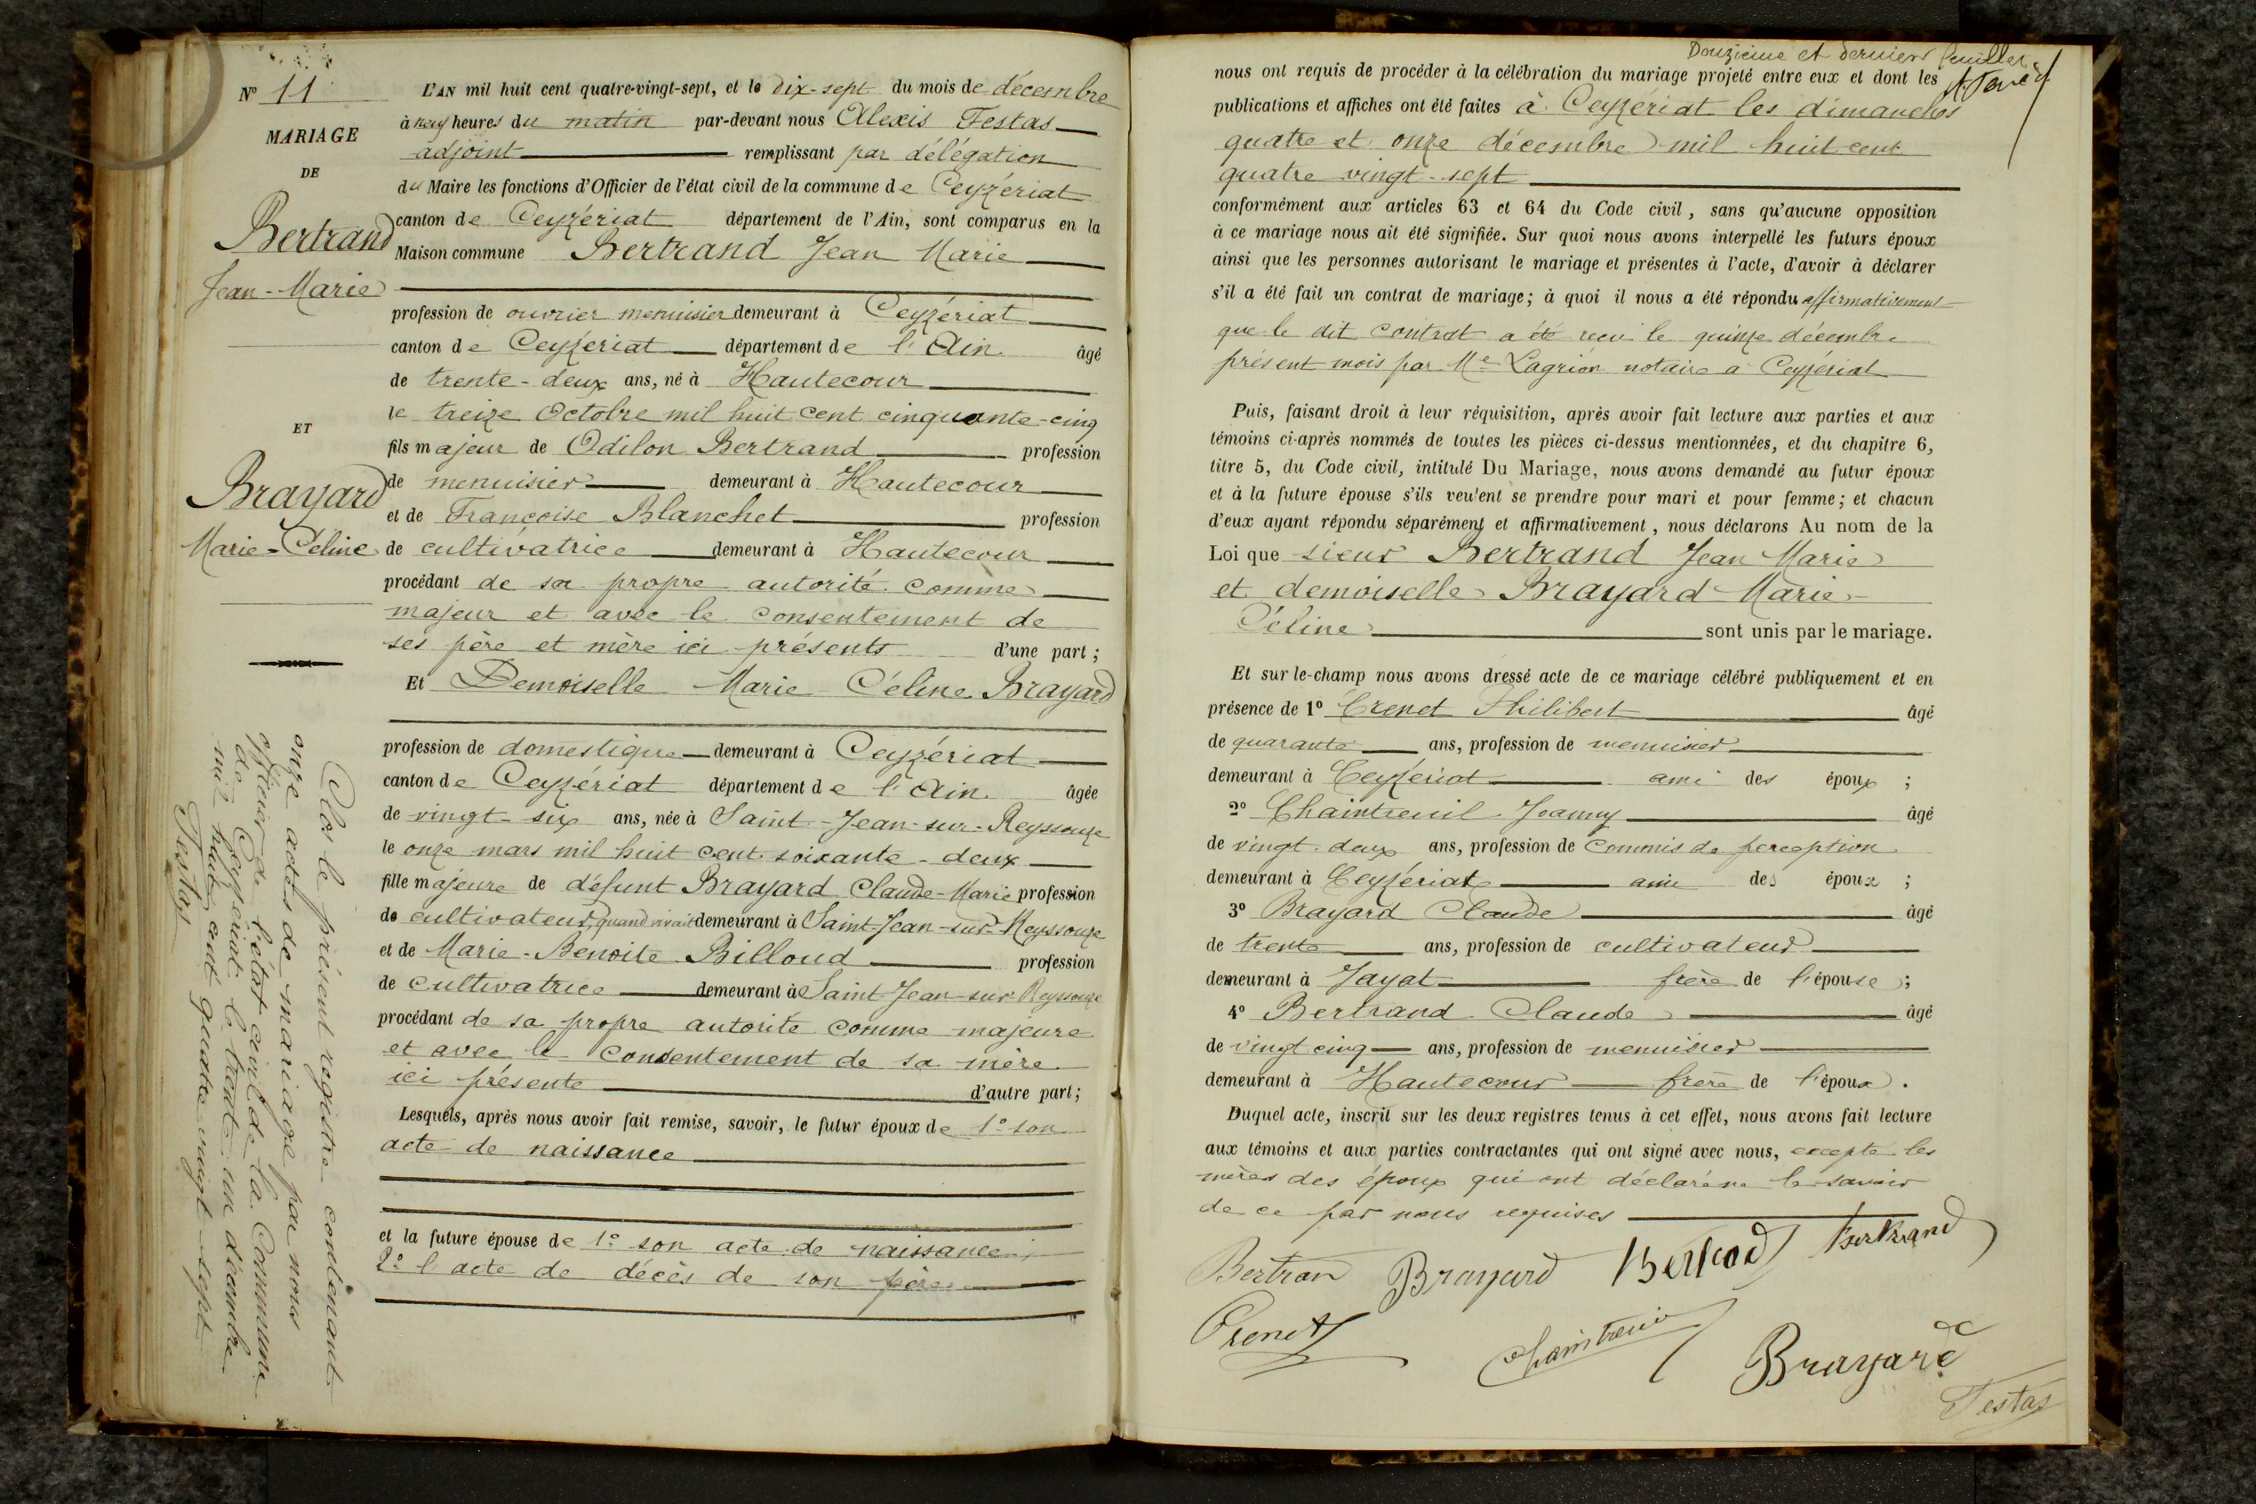 Nº 11
MARIAGE
DE
Bertrand
Jean-Marie
ET
Brayard
Marie-Céline
L'AN mil huit cent quatre-vingt-sept, et le dix-sept du mois de décembre
à neuf heures du matin par-devant nous Alexis Festas
adjoint remplissant par délégation
du Maire les fonctions d'Officier de l'état civil de la commune de Ceyzériat
canton de Ceyzériat département de l'Ain, sont comparus en la
Maison commune Bertrand Jean Marie
profession de ouvrier menuisier demeurant à Ceyzériat
canton de Ceyzériat département de l'Ain âgé
de trente-deux ans, né à Hautecour
le treize Octobre mil huit cent cinquante-cinq
fils majeur de Odilon Bertrand profession
de menuisier demeurant à Hautecour
et de Françoise Blanchet profession
de cultivatrice demeurant à Hautecour
procédant de sa propre autorité comme
majeur et avec le consentement de
ses père et mère ici présents d'une part ;
Et Demoiselle Marie Céline Brayard
profession de domestique demeurant à Ceyzériat
canton de Ceyzériat département de l'Ain âgée
de vingt-six ans, née à Saint-Jean-sur-Reyssouze
le onze mars mil huit cent soixante-deux
fille majeure de défunt Brayard Claude-Marie profession
de cultivateur, quand vivait demeurant à Saint-Jean-sur-Reyssouze
et de Marie-Benoite Billoud profession
de cultivatrice demeurant à Saint-Jean-sur Reyssouze
procédant de sa propre autorité comme majeure
et avec le consentement de sa mère
ici présente d'autre part ;
Lesquels, après nous avoir fait remise, savoir, le futur époux de 1º son
acte de naissance
et la future épouse de 1º son acte de naissance
2º l'acte de décès de son père
Clos le présent registre contenant
onze actes de mariage par nous
officier de l'état civil de la Commune
de Ceyzériat le trente-un décembre
mil huit cent quatre-vingt-sept
Festas
Douzième et dernier feuillet
nous ont requis de procéder à la célébration du mariage projeté entre eux et dont les
publications et affiches ont été faites à Ceyzériat les dimanches
quatre et onze décembre mil huit cent
quatre vingt-sept
conformément aux articles 63 et 64 du Code civil, sans qu'aucune opposition
à ce mariage nous ait été signifiée. Sur quoi nous avons interpellé les futurs époux
ainsi que les personnes autorisant le mariage et présentes à l'acte, d'avoir à déclarer
s'il a été fait un contrat de mariage ; à quoi il nous a été répondu affirmativement
que le dit contrat a été recu le quinze décembre
présent mois par Me Lagrion notaire a Ceyzériat
Puis, faisant droit à leur réquisition, après avoir fait lecture aux parties et aux
témoins ci-après nommés de toutes les pièces ci-dessus mentionnées, et du chapitre 6,
titre 5, du Code civil, intitulé Du Mariage, nous avons demandé au futur époux
et à la future épouse s'ils veulent se prendre pour mari et pour femme ; et chacun
d'eux ayant répondu séparément et affirmativement, nous déclarons Au nom de la
Loi que sieur Bertrand Jean Marie
et demoiselle Brayard Marie
Céline sont unis par le mariage.
Et sur le-champ nous avons dressé acte de ce mariage célébré publiquement et en
présence de 1º Crenet Philibert âgé
de quarante ans, profession de menuisier
demeurant à Ceyzériat ami des époux ;
2º Chaintreuil Joanny âgé
de vingt-deux ans, profession de Commis de perception
demeurant à Ceyzériat ami des époux ;
3º Brayard Claude âgé
de trente ans, profession de cultivateur
demeurant à Jayat frère de l'épouse ;
4º Bertrand Claude âgé
de vingt cinq ans, profession de menuisier
demeurant à Hautecour frère de l'époux.
Duquel acte, inscrit sur les deux registres tenus à cet effet, nous avons fait lecture
aux témoins et aux parties contractantes qui ont signé avec nous, excepté les
mères des époux qui ont déclaré ne le savoir
de ce par nous requises
Bertran Brayard Bertrand Bertrand
Crenet Chaintreuil Brayard
Festas